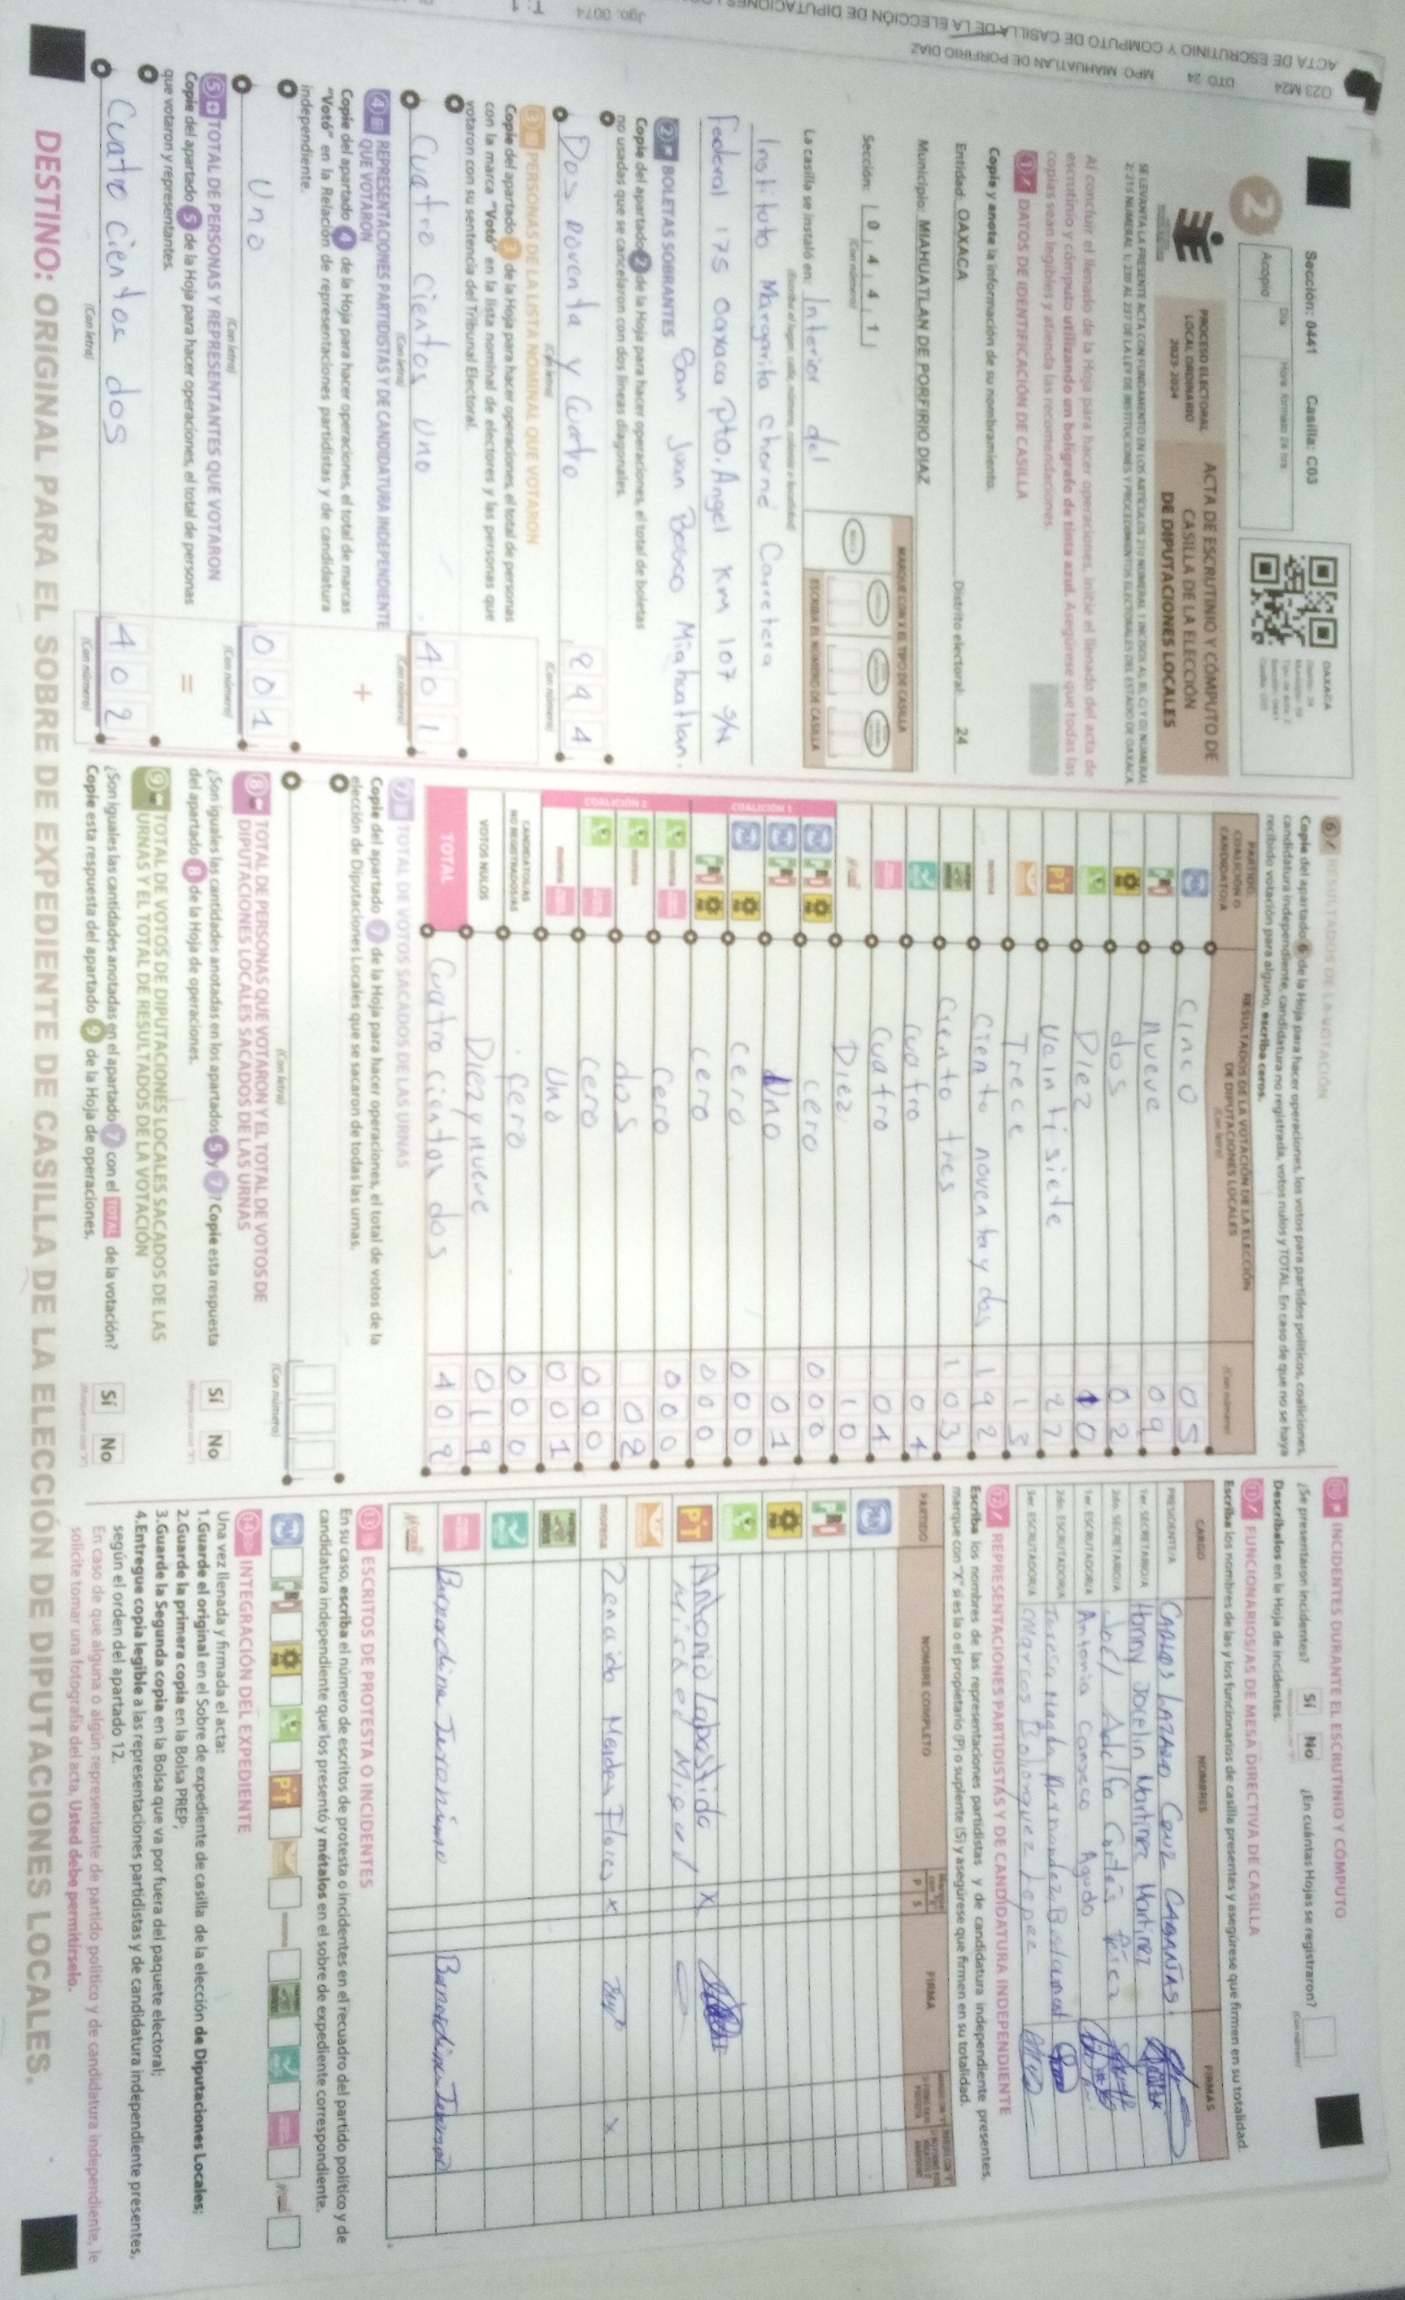 Sección: 0441 Casilla: C03
2
Acopio
OAXACA
PROCESO ELECTORAL
LOCAL ORDINARIO
2023-2024
ACTA DE ESCRUTINIO Y CÓMPUTO DE
CASILLA DE LA ELECCIÓN
DE DIPUTACIONES LOCALES
Al concluir el llenado de la Hoja para hacer operaciones, inicie el llenado del acta de
escrutinio y cómputo utilizando un bolígrafo de tinta azul. Asegúrese que todas las
copias sean legibles y atienda las recomendaciones.
1 DATOS DE IDENTIFICACIÓN DE CASILLA
Copie y anote la información de su nombramiento.
Entidad: OAXACA Distrito electoral: 24
Municipio: MIAHUATLAN DE PORFIRIO DIAZ
Sección: 0 4 4 1
(Con número)
MARQUE CON X EL TIPO DE CASILLA
ESCRIBA EL NÚMERO DE CASILLA
La casilla se instaló en: Interior del
Instituto Margarita chorné Carretera
Federal 175 Oaxaca Pto. Angel Km 107 S/N
San Juan Bosco Miahuatlan.
2 BOLETAS SOBRANTES
Copie del apartado 2 de la Hoja para hacer operaciones, el total de boletas
no usadas que se cancelaron con dos líneas diagonales.
Dos noventa y Cuatro 294
(Con letra) (Con número)
3 PERSONAS DE LA LISTA NOMINAL QUE VOTARON
Copie del apartado 3 de la Hoja para hacer operaciones, el total de personas
con la marca "Votó" en la lista nominal de electores y las personas que
votaron con su sentencia del Tribunal Electoral.
Cuatro Cientos Uno 401
(Con letra) (Con número)
4 REPRESENTACIONES PARTIDISTAS Y DE CANDIDATURA INDEPENDIENTE
QUE VOTARON
Copie del apartado 4 de la Hoja para hacer operaciones, el total de marcas
"Votó" en la Relación de representaciones partidistas y de candidatura
independiente.
+
Uno 001
(Con letra) (Con número)
5 TOTAL DE PERSONAS Y REPRESENTANTES QUE VOTARON
Copie del apartado 5 de la Hoja para hacer operaciones, el total de personas
que votaron y representantes.
=
Cuatro Cientos dos 402
(Con letra) (Con número)
6 RESULTADOS DE LA VOTACIÓN
Copie del apartado 6 de la Hoja para hacer operaciones, los votos para partidos políticos, coaliciones,
candidatura independiente, candidatura no registrada, votos nulos y TOTAL. En caso de que no se haya
recibido votación para alguno, escriba ceros.
PARTIDO, COALICIÓN O CANDIDATO/A
RESULTADOS DE LA VOTACIÓN DE LA ELECCIÓN
DE DIPUTACIONES LOCALES
PAN Cinco 05
PRI nueve 09
PRD dos 02
Diez 10
PT Vaintisiete 27
Trece 13
morena Ciento noventa y dos 192
Ciento tres 103
Cuatro 04
Cuatro 04
Diez 10
COALICIÓN 1
cero 000
Uno 01
cero 000
cero 000
COALICIÓN 2
cero 000
dos 02
cero 000
Uno 001
CANDIDATOS/AS NO REGISTRADOS/AS cero 000
VOTOS NULOS Diez y nueve 019
TOTAL Cuatro cientos dos 402
7 TOTAL DE VOTOS SACADOS DE LAS URNAS
Copie del apartado 7 de la Hoja para hacer operaciones, el total de votos de la
elección de Diputaciones Locales que se sacaron de todas las urnas.
(Con letra) (Con número)
8 TOTAL DE PERSONAS QUE VOTARON Y EL TOTAL DE VOTOS DE
DIPUTACIONES LOCALES SACADOS DE LAS URNAS
¿Son iguales las cantidades anotadas en los apartados 5 y 7? Copie esta respuesta
del apartado 8 de la Hoja de operaciones. Sí No
9 TOTAL DE VOTOS DE DIPUTACIONES LOCALES SACADOS DE LAS
URNAS Y EL TOTAL DE RESULTADOS DE LA VOTACIÓN
¿Son iguales las cantidades anotadas en el apartado 7 con el TOTAL de la votación?
Copie esta respuesta del apartado 9 de la Hoja de operaciones. Sí No
10 INCIDENTES DURANTE EL ESCRUTINIO Y CÓMPUTO
¿Se presentaron incidentes? Sí No ¿En cuántas Hojas se registraron?
Descríbalos en la Hoja de incidentes.
11 FUNCIONARIOS/AS DE MESA DIRECTIVA DE CASILLA
Escriba los nombres de las y los funcionarios de casilla presentes y asegúrese que firmen en su totalidad.
CARGO NOMBRES FIRMAS
PRESIDENTE/A CARLOS LAZARO CRUZ CABAÑAS.
1er. SECRETARIO/A Hanny Jocelin Martinez Martinez
2do. SECRETARIO/A Joel Adelfo Cortés Pérez
1er. ESCRUTADOR/A Antonia Canseco Agudo
2do. ESCRUTADOR/A
3er. ESCRUTADOR/A Marcos Bolonguez Lopez
12 REPRESENTACIONES PARTIDISTAS Y DE CANDIDATURA INDEPENDIENTE
Escriba los nombres de las representaciones partidistas y de candidatura independiente presentes,
marque con "X" si es la o el propietario (P) o suplente (S) y asegúrese que firmen en su totalidad.
PARTIDO NOMBRE COMPLETO FIRMA
PAN
PRI
PRD
PT Antonio Labastida X
Misael Miguel
morena Zenaido Mendez Flores X
Bernardina Jeronimo
13 ESCRITOS DE PROTESTA O INCIDENTES
En su caso, escriba el número de escritos de protesta o incidentes en el recuadro del partido político y de
candidatura independiente que los presentó y métalos en el sobre de expediente correspondiente.
14 INTEGRACIÓN DEL EXPEDIENTE
Una vez llenada y firmada el acta:
1.Guarde el original en el Sobre de expediente de casilla de la elección de Diputaciones Locales;
2.Guarde la primera copia en la Bolsa PREP;
3.Guarde la Segunda copia en la Bolsa que va por fuera del paquete electoral;
4.Entregue copia legible a las representaciones partidistas y de candidatura independiente presentes,
según el orden del apartado 12.
En caso de que alguna o algún representante de partido político y de candidatura independiente, le
solicite tomar una fotografía del acta, Usted debe permitírselo.
DESTINO: ORIGINAL PARA EL SOBRE DE EXPEDIENTE DE CASILLA DE LA ELECCIÓN DE DIPUTACIONES LOCALES.
023 M24 DTO 24 MPO. MIAHUATLAN DE PORFIRIO DIAZ
ACTA DE ESCRUTINIO Y COMPUTO DE CASILLA DE LA ELECCIÓN DE DIPUTACIONES
Jgo. 0074